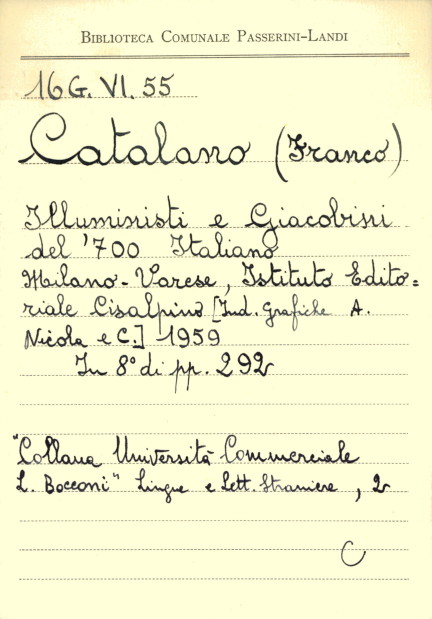 BIBLIOTECA COMUNALE PASSERINI-LANDI
16G. VI. 55
Catalano (Franco)
Illuministi e Giacobini
del '700 Italiano
Milano - Varese, Istituto Edito=
riale Cisalpino [Ind. Grafiche A.
Nicola e C.] 1959
In 8° di pp. 292
"Collana Università Commerciale
L. Bocconi" Lingue e Lett. Straniere, 2
C